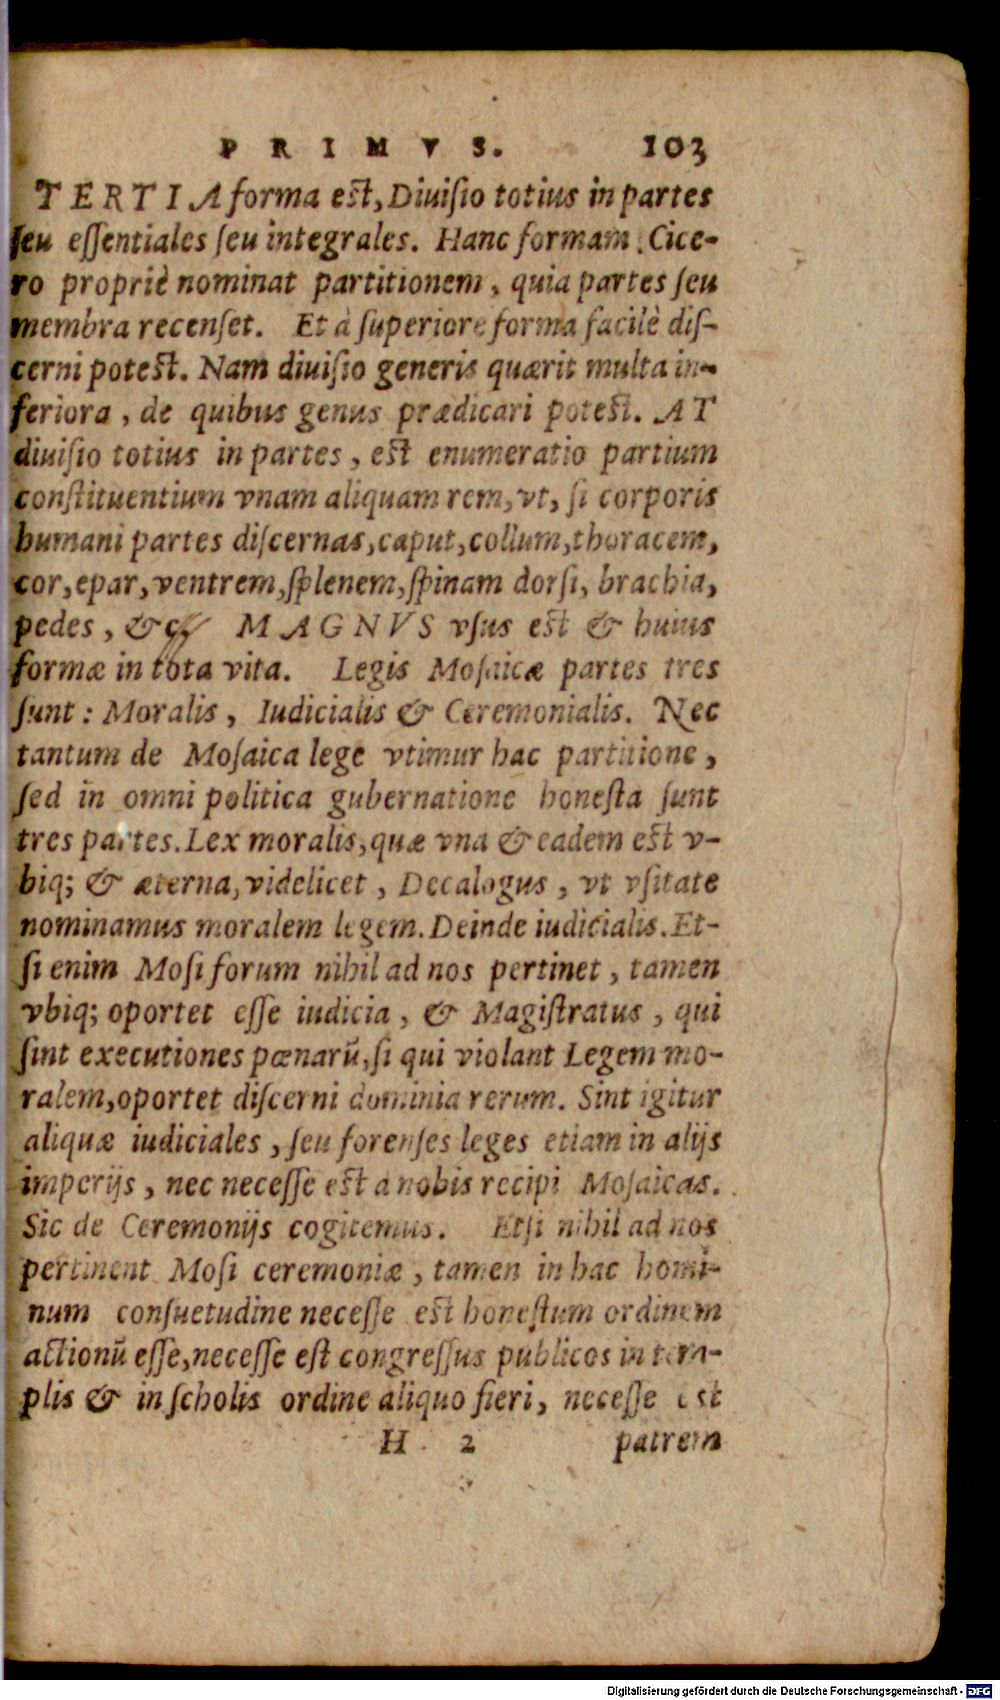 PRIMVS. 103
TERTIA forma est, Diuiſio totius in partes
ſeu eſſentiales ſeu integrales. Hanc formam Cice-
ro propriè nominat partitionem, quia partes ſeu
membra recenſet. Et à ſuperiore forma facilè diſ-
cerni potest. Nam diuiſio generis quærit multa in-
feriora, de quibus genus prædicari potest. AT
diuiſio totius in partes, est enumeratio partium
conſtituentium vnam aliquam rem, vt, ſi corporis
humani partes diſcernas, caput, collum, thoracem,
cor, epar, ventrem, ſplenem, ſpinam dorſi, brachia,
pedes, &c. MAGNVS vſus est & huius
formæ in tota vita. Legis Moſaicæ partes tres
ſunt: Moralis, Iudicialis & Ceremonialis. Nec
tantum de Moſaica lege vtimur hac partitione,
ſed in omni politica gubernatione honeſta ſunt
tres partes. Lex moralis, quæ vna & eadem est v-
biq; & æterna, videlicet, Decalogus, vt vſitate
nominamus moralem legem. Deinde iudicialis. Et-
ſi enim Moſi forum nihil ad nos pertinet, tamen
vbiq; oportet eſſe iudicia, & Magiſtratus, qui
ſint executiones pœnarū, ſi qui violant Legem mo-
ralem, oportet diſcerni dominia rerum. Sint igitur
aliquæ iudiciales, ſeu forenſes leges etiam in alijs
imperijs, nec neceſſe est a nobis recipi Moſaicas.
Sic de Ceremonijs cogitemus. Etſi nihil ad nos
pertinent Moſi ceremoniæ, tamen in hac homi-
num conſuetudine neceſſe est honeſtum ordinem
actionū eſſe, neceſſe eſt congreſſus publicos in tem-
plis & in ſcholis ordine aliquo fieri, neceſſe est
H 2 patrem
Digitalisierung gefördert durch die Deutsche Forschungsgemeinschaft - DFG